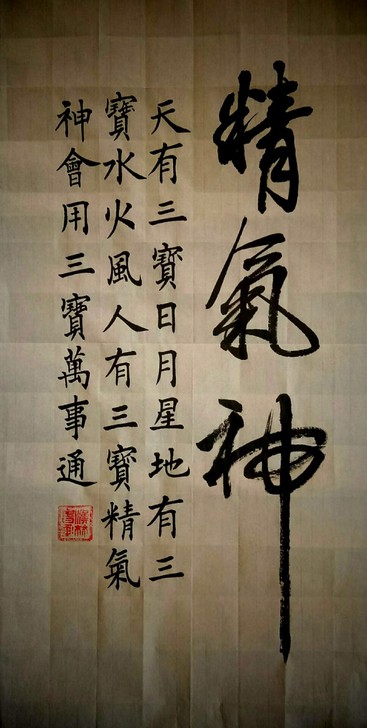 精氣神
天有三寶日月星地有三
寶水火風人有三寶精氣
神會用三寶萬事通